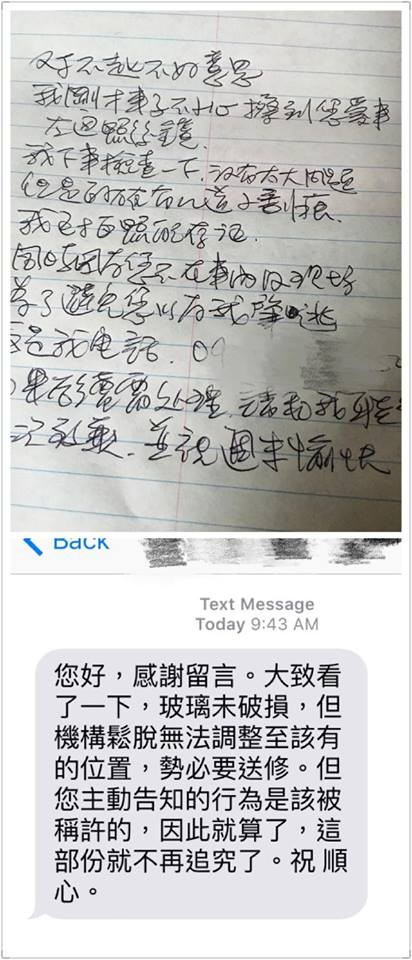 对不起不好意思
我剛才車子不小心擦到您愛車
左邊照後鏡.
我下車檢查一下,沒有太大問題
但是的確有一道小刮痕.
我已拍照存証.
同時因為您不在車內及現場
為了避免您以為我肇逃
這是我電話. 09
果後續需處理,請和我聯
致歉. 並祝週末愉快
Back
Text Message
Today 9:43 AM
您好，感謝留言。大致看
了一下，玻璃未破損，但
機構鬆脫無法調整至該有
的位置，勢必要送修。但
您主動告知的行為是該被
稱許的，因此就算了，這
部份就不再追究了。祝 順
心。